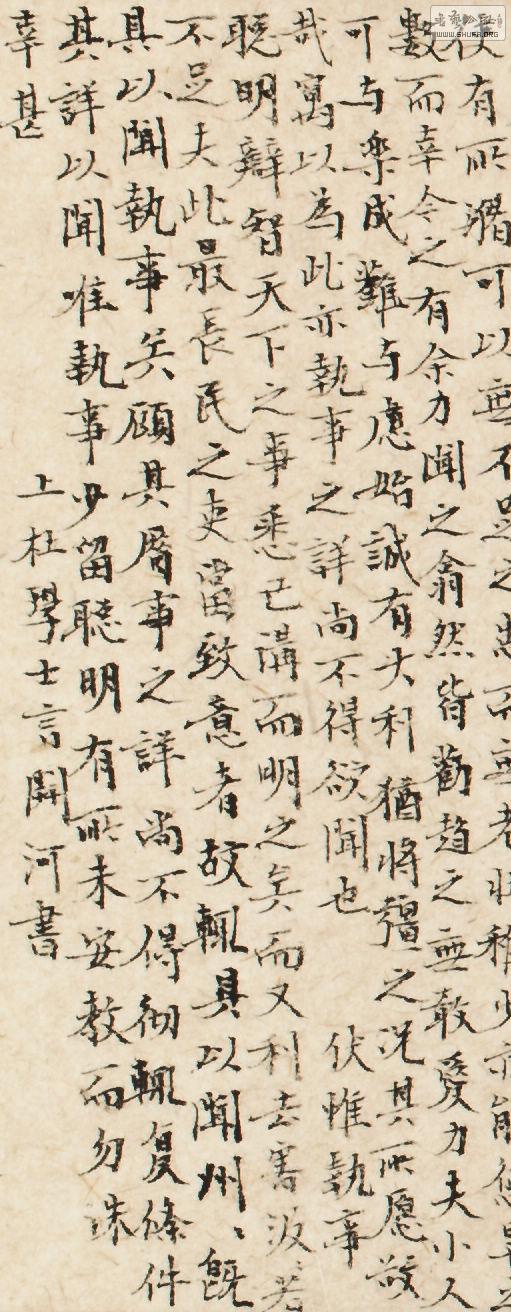 使有所瀦可以無不足之患而無老壯稚少亦能
數而幸今之有余力聞之翕然皆勸趋之無敢愛力夫小人
可与樂成難与慮始誠有大利猶將彊之況其所愿欲
哉寓以為此亦執事之詳尚不得欲聞也 伏惟執事
聡明辯智天下之事悉已講而明之矣而又利去害汲汲若
不足夫此最長民之吏當致意者故輒具以聞州、既
具以聞執事矣顧其厝事之詳尚不得彻輒复條件
其詳以聞唯執事少留聡明有所未安教而勿誅
幸甚
上杜學士言開河書
www.SHUFA.ORG